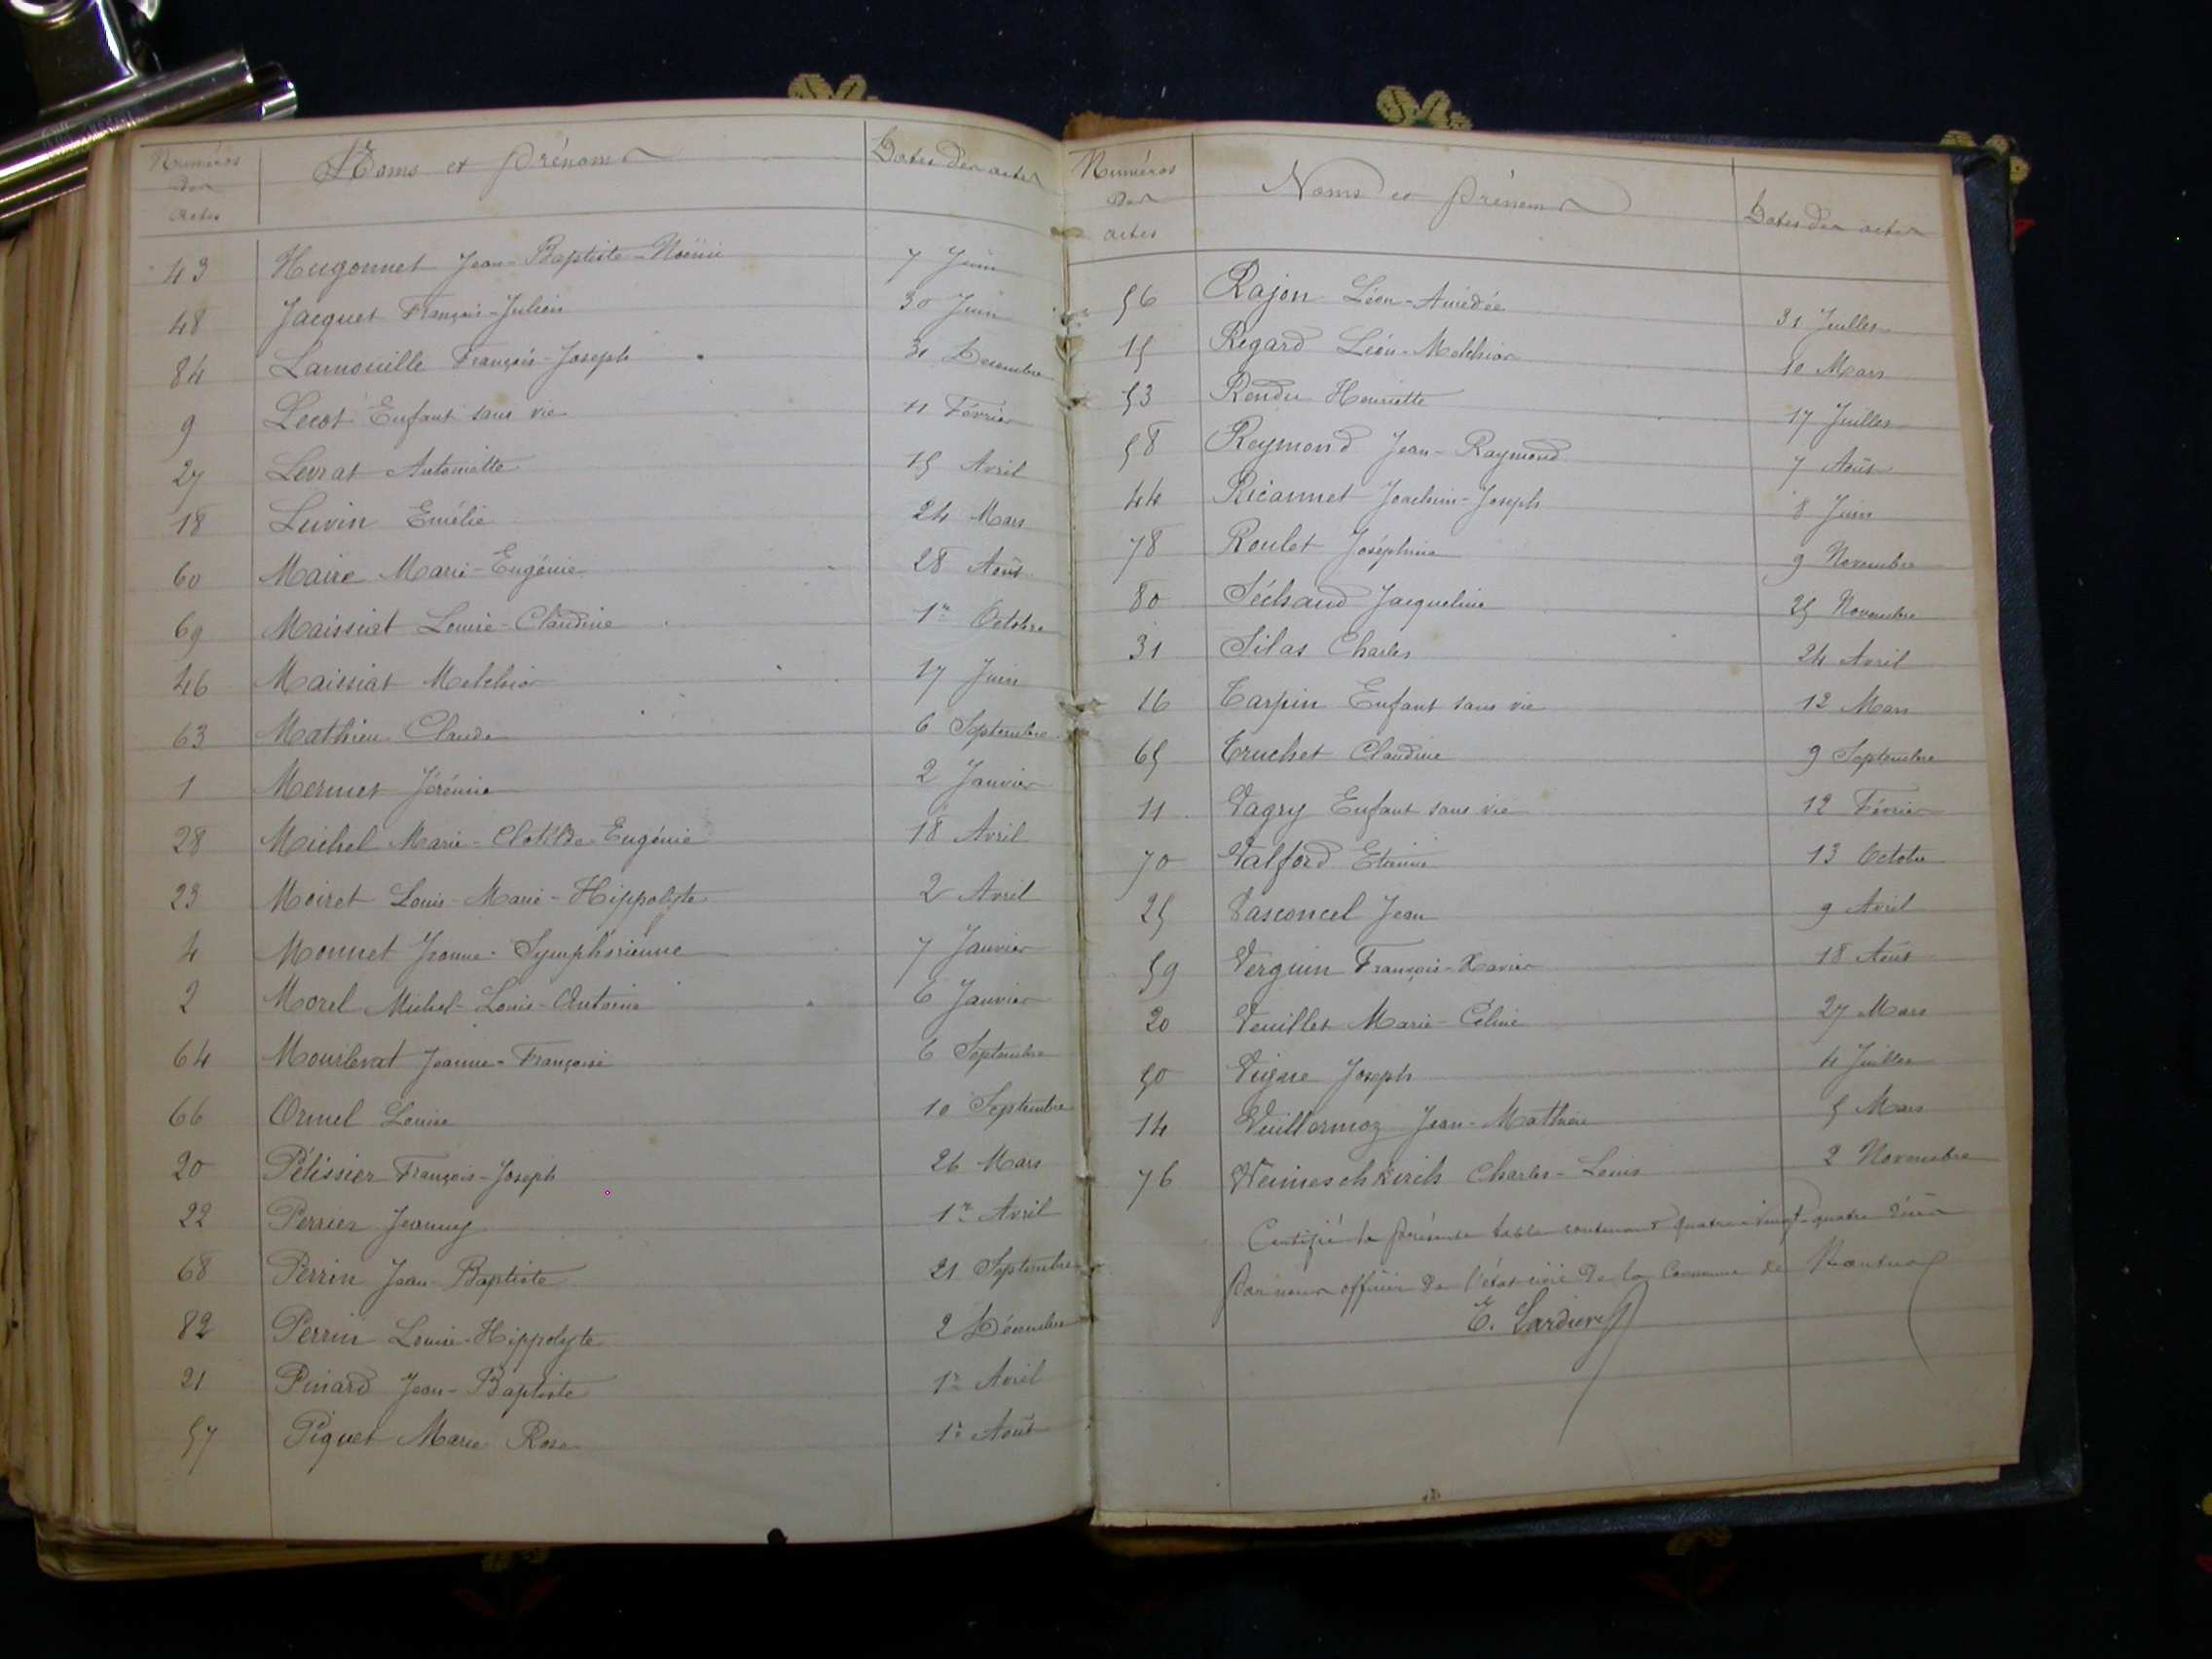 Numéros des actes | Noms et Prénoms | Dates des actes
43 Hugonnet Jean-Baptiste-Noëmi 7 Juin
48 Jacquet François-Julien 30 Juin
84 Lamouille François-Joseph 31 Décembre
9 Lecot Enfant sans vie 11 Février
27 Levrat Antoinette 15 Avril
18 Luvin Emélie 24 Mars
60 Maire Marie-Eugénie 28 Août
69 Maissiat Louise-Claudine 1er Octobre
46 Maissiat Melchior 17 Juin
63 Mathieu Claude 6 Septembre
1 Mermet Jérémie 2 Janvier
28 Michel Marie-Clotilde-Eugénie 18 Avril
23 Moiret Louis-Marie-Hippolyte 2 Avril
4 Monnet Jeanne-Symphorienne 7 Janvier
2 Morel Michel-Louis-Antoine 6 Janvier
64 Mourlevat Jeanne-Françoise 6 Septembre
66 Ormel Louise 10 Septembre
20 Pélissier François-Joseph 26 Mars
22 Perrier Jeanny 1er Avril
68 Perrin Jean-Baptiste 21 Septembre
82 Perrin Louise-Hippolyte 2 Décembre
21 Pinard Jean-Baptiste 1er Avril
57 Piquet Marie Rose 1er Août
Numéros des actes | Noms et Prénoms | Dates des actes
56 Rajon Léon-Amédée 31 Juillet
15 Regard Léon-Melchior 10 Mars
53 Rendu Henriette 17 Juillet
58 Reymond Jean-Raymond 7 Août
44 Ricannet Joachim-Joseph 8 Juin
78 Roulet Joséphine 9 Novembre
80 Séchaud Jacqueline 25 Novembre
31 Silas Charles 24 Avril
16 Tarpin Enfant sans vie 12 Mars
65 Truchet Claudine 9 Septembre
11 Vagry Enfant sans vie 12 Février
70 Valford Etienne 13 Octobre
25 Vasconcel Jean 9 Avril
59 Verguin François-Xavier 18 Août
20 Veuillet Marie-Céline 27 Mars
50 Vigne Joseph 4 Juillet
14 Vuillermoz Jean-Mathieu 5 Mars
76 Weimeschkirch Charles-Louis 2 Novembre
Certifié la présente table contenant quatre-vingt-quatre
Par nous officier de l'état civil de la Commune de Nantua
E.